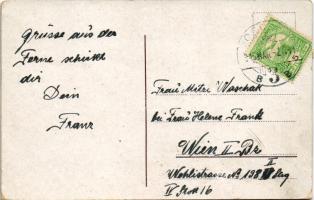 Grüsse aus der
Ferne schickt
dir
Dein
Franz
Frau Mitzi Waschak
bei Frau Helene Frank
Wien II Bez
II
Wehlistrasse No 198
IV Stock 16
B